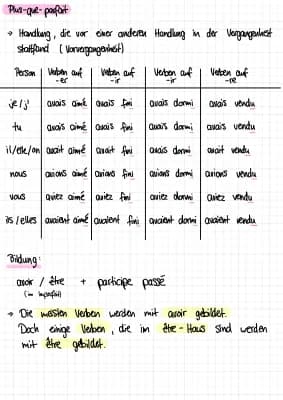 Plus-que-parfait
→ Handlung, die vor einer anderen Handlung in der Vergangenheit
stattfand (Vorvergangenheit)
Person Verben auf -er Verben auf -ir Verben auf -ir Verben auf -re
je/j' avais aimé avais fini avais dormi avais vendu
tu avais aimé avais fini avais dormi avais vendu
il/elle/on avait aimé avait fini avais dormi avait vendu
nous avions aimé avions fini avions dormi avions vendu
vous aviez aimé aviez fini aviez dormi aviez vendu
ils/elles avaient aimé avaient fini avaient dormi avaient vendu
Bildung:
avoir / être + participe passé
(im imparfait)
→ Die meisten Verben werden mit avoir gebildet.
Doch einige Verben, die im être-Haus sind werden
mit être gebildet.